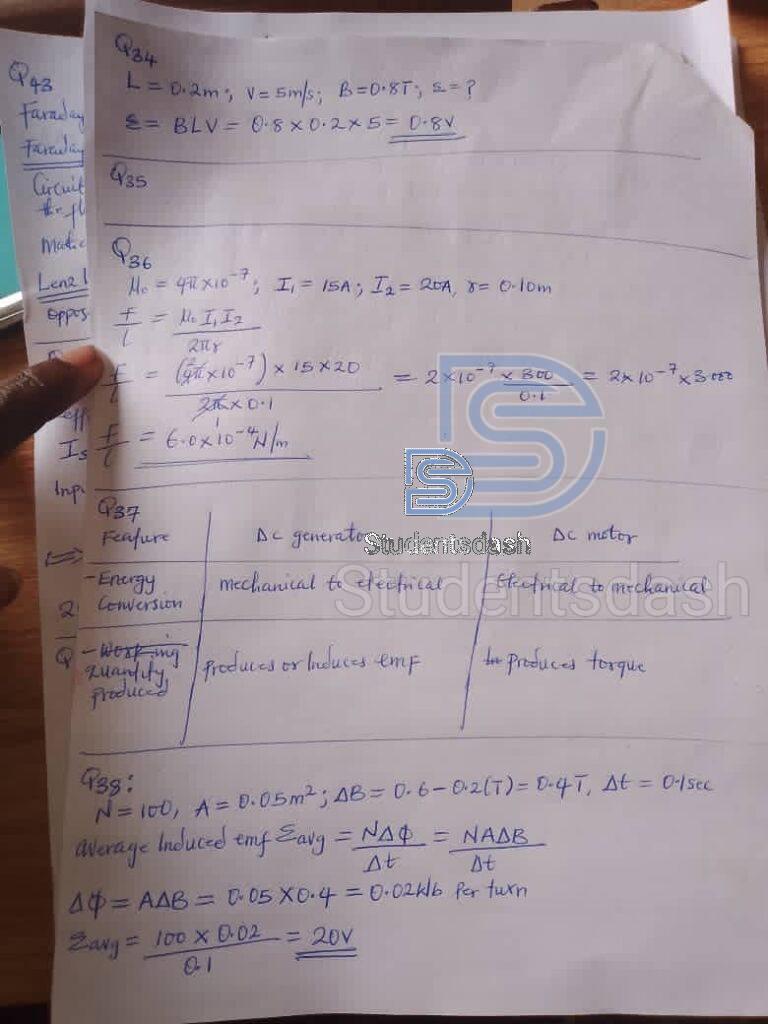 Q43
Faraday
Faraday
Circuit
the fl
Lenz l
oppos
Is
Inpu
2
Q
Q34
L = 0.2m; V = 5m/s; B = 0.8T; ε = ?
ε = BLV = 0.8 × 0.2 × 5 = 0.8V
Q35
Q36
μ₀ = 4π×10⁻⁷; I₁ = 15A; I₂ = 20A, r = 0.10m
F/l = μ₀ I₁ I₂ / 2πr
F/l = (4π×10⁻⁷) × 15 × 20 / 2π × 0.1 = 2×10⁻⁷ × 300 / 0.1 = 2×10⁻⁷ × 3000
F/l = 6.0×10⁻⁴ N/m
Q37
Feature Dc generator Dc motor
-Energy Conversion mechanical to electrical Electrical to mechanical
-Working Quantity produced produces or Induces emf produces torque
Studentsdash
Studentsdash
Q38:
N = 100, A = 0.05m²; ΔB = 0.6 - 0.2(T) = 0.4T, Δt = 0.1sec
average Induced emf Σavg = NΔΦ / Δt = NAΔB / Δt
ΔΦ = AΔB = 0.05 × 0.4 = 0.02Wb Per turn
Σavg = 100 × 0.02 / 0.1 = 20V